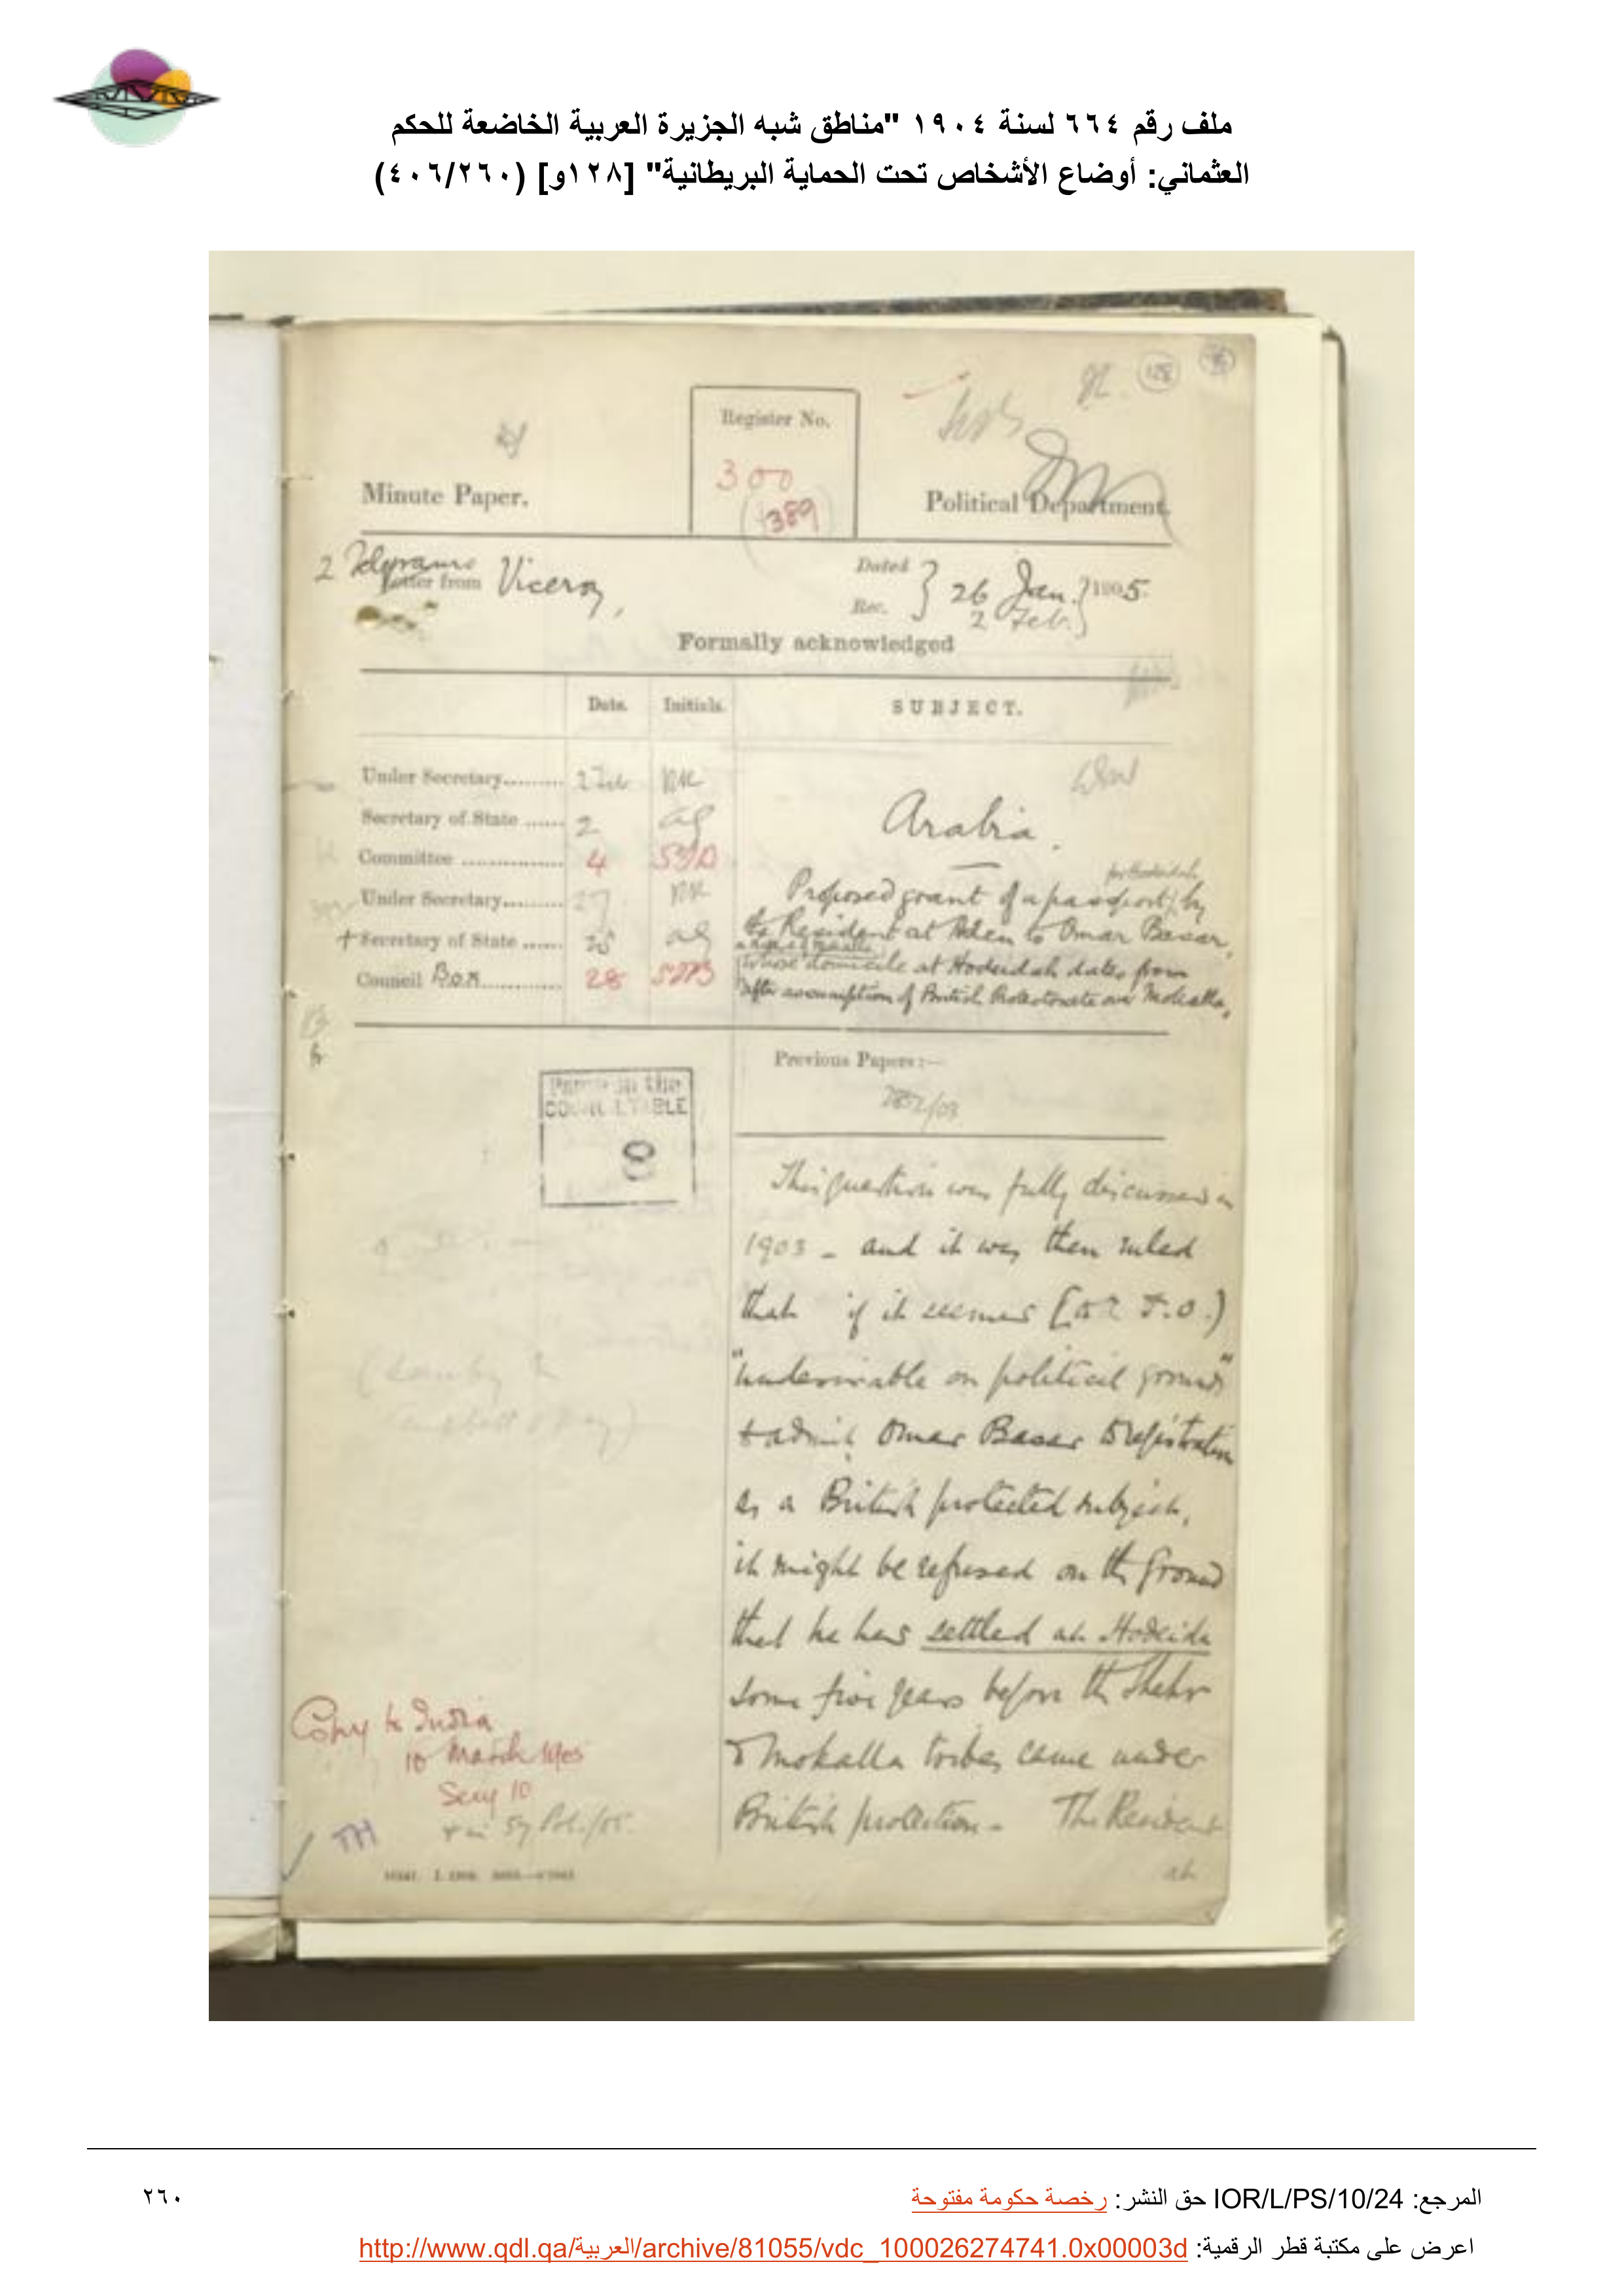 ملف رقم ٦٦٤ لسنة ١٩٠٤ "مناطق شبه الجزيرة العربية الخاضعة للحكم
العثماني: أوضاع الأشخاص تحت الحماية البريطانية" [١٢٨و] (٤٠٦/٢٦٠)
128
Register No.
300
389
Minute Paper.
Political Department.
2 Telegrams
Letter from Viceroy,
Dated
Rec.
26 Jan. 1905.
2 Feb.
Formally acknowledged
Date. Initials. SUBJECT.
Under Secretary.........
Secretary of State ...... 2
Committee ................ 4
Under Secretary......... 27
Secretary of State ......
Council Box............ 28
Arabia.
for Hodeidah
Proposed grant of a passport by
the Resident at Aden to Omar Basar,
whose domicile at Hodeidah dates from
after assumption of British Protectorate over Mokalla,
Previous Papers:—
in the
COUNCIL TABLE
8
This question was fully discussed in
1903 - and it was then ruled
that if it seemed F.O.)
"undesirable on political grounds"
to admit Omar Basar to registration
as a British protected subject,
it might be refused on the ground
that he has settled at Hodeida
some five years before the Shehr
& Mokalla tribes came under
British protection - The Resident
at
Copy to India
10 March 1905
Secy 10
TH
المرجع: IOR/L/PS/10/24 حق النشر: رخصة حكومة مفتوحة
٢٦٠
اعرض على مكتبة قطر الرقمية: http://www.qdl.qa/العربية/archive/81055/vdc_100026274741.0x00003d